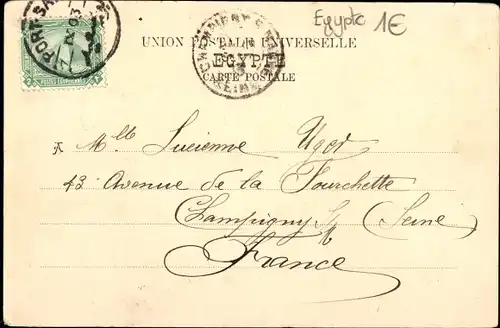 Egypte 1€
PORT-SA
UNION POSTALE UNIVERSELLE
EGYPTE
CARTE POSTALE
CHAMPIGNY S
SEINE
A Mlle Lucienne Ugor
43 Avenue de la Fourchette
Champigny s/M (Seine)
France